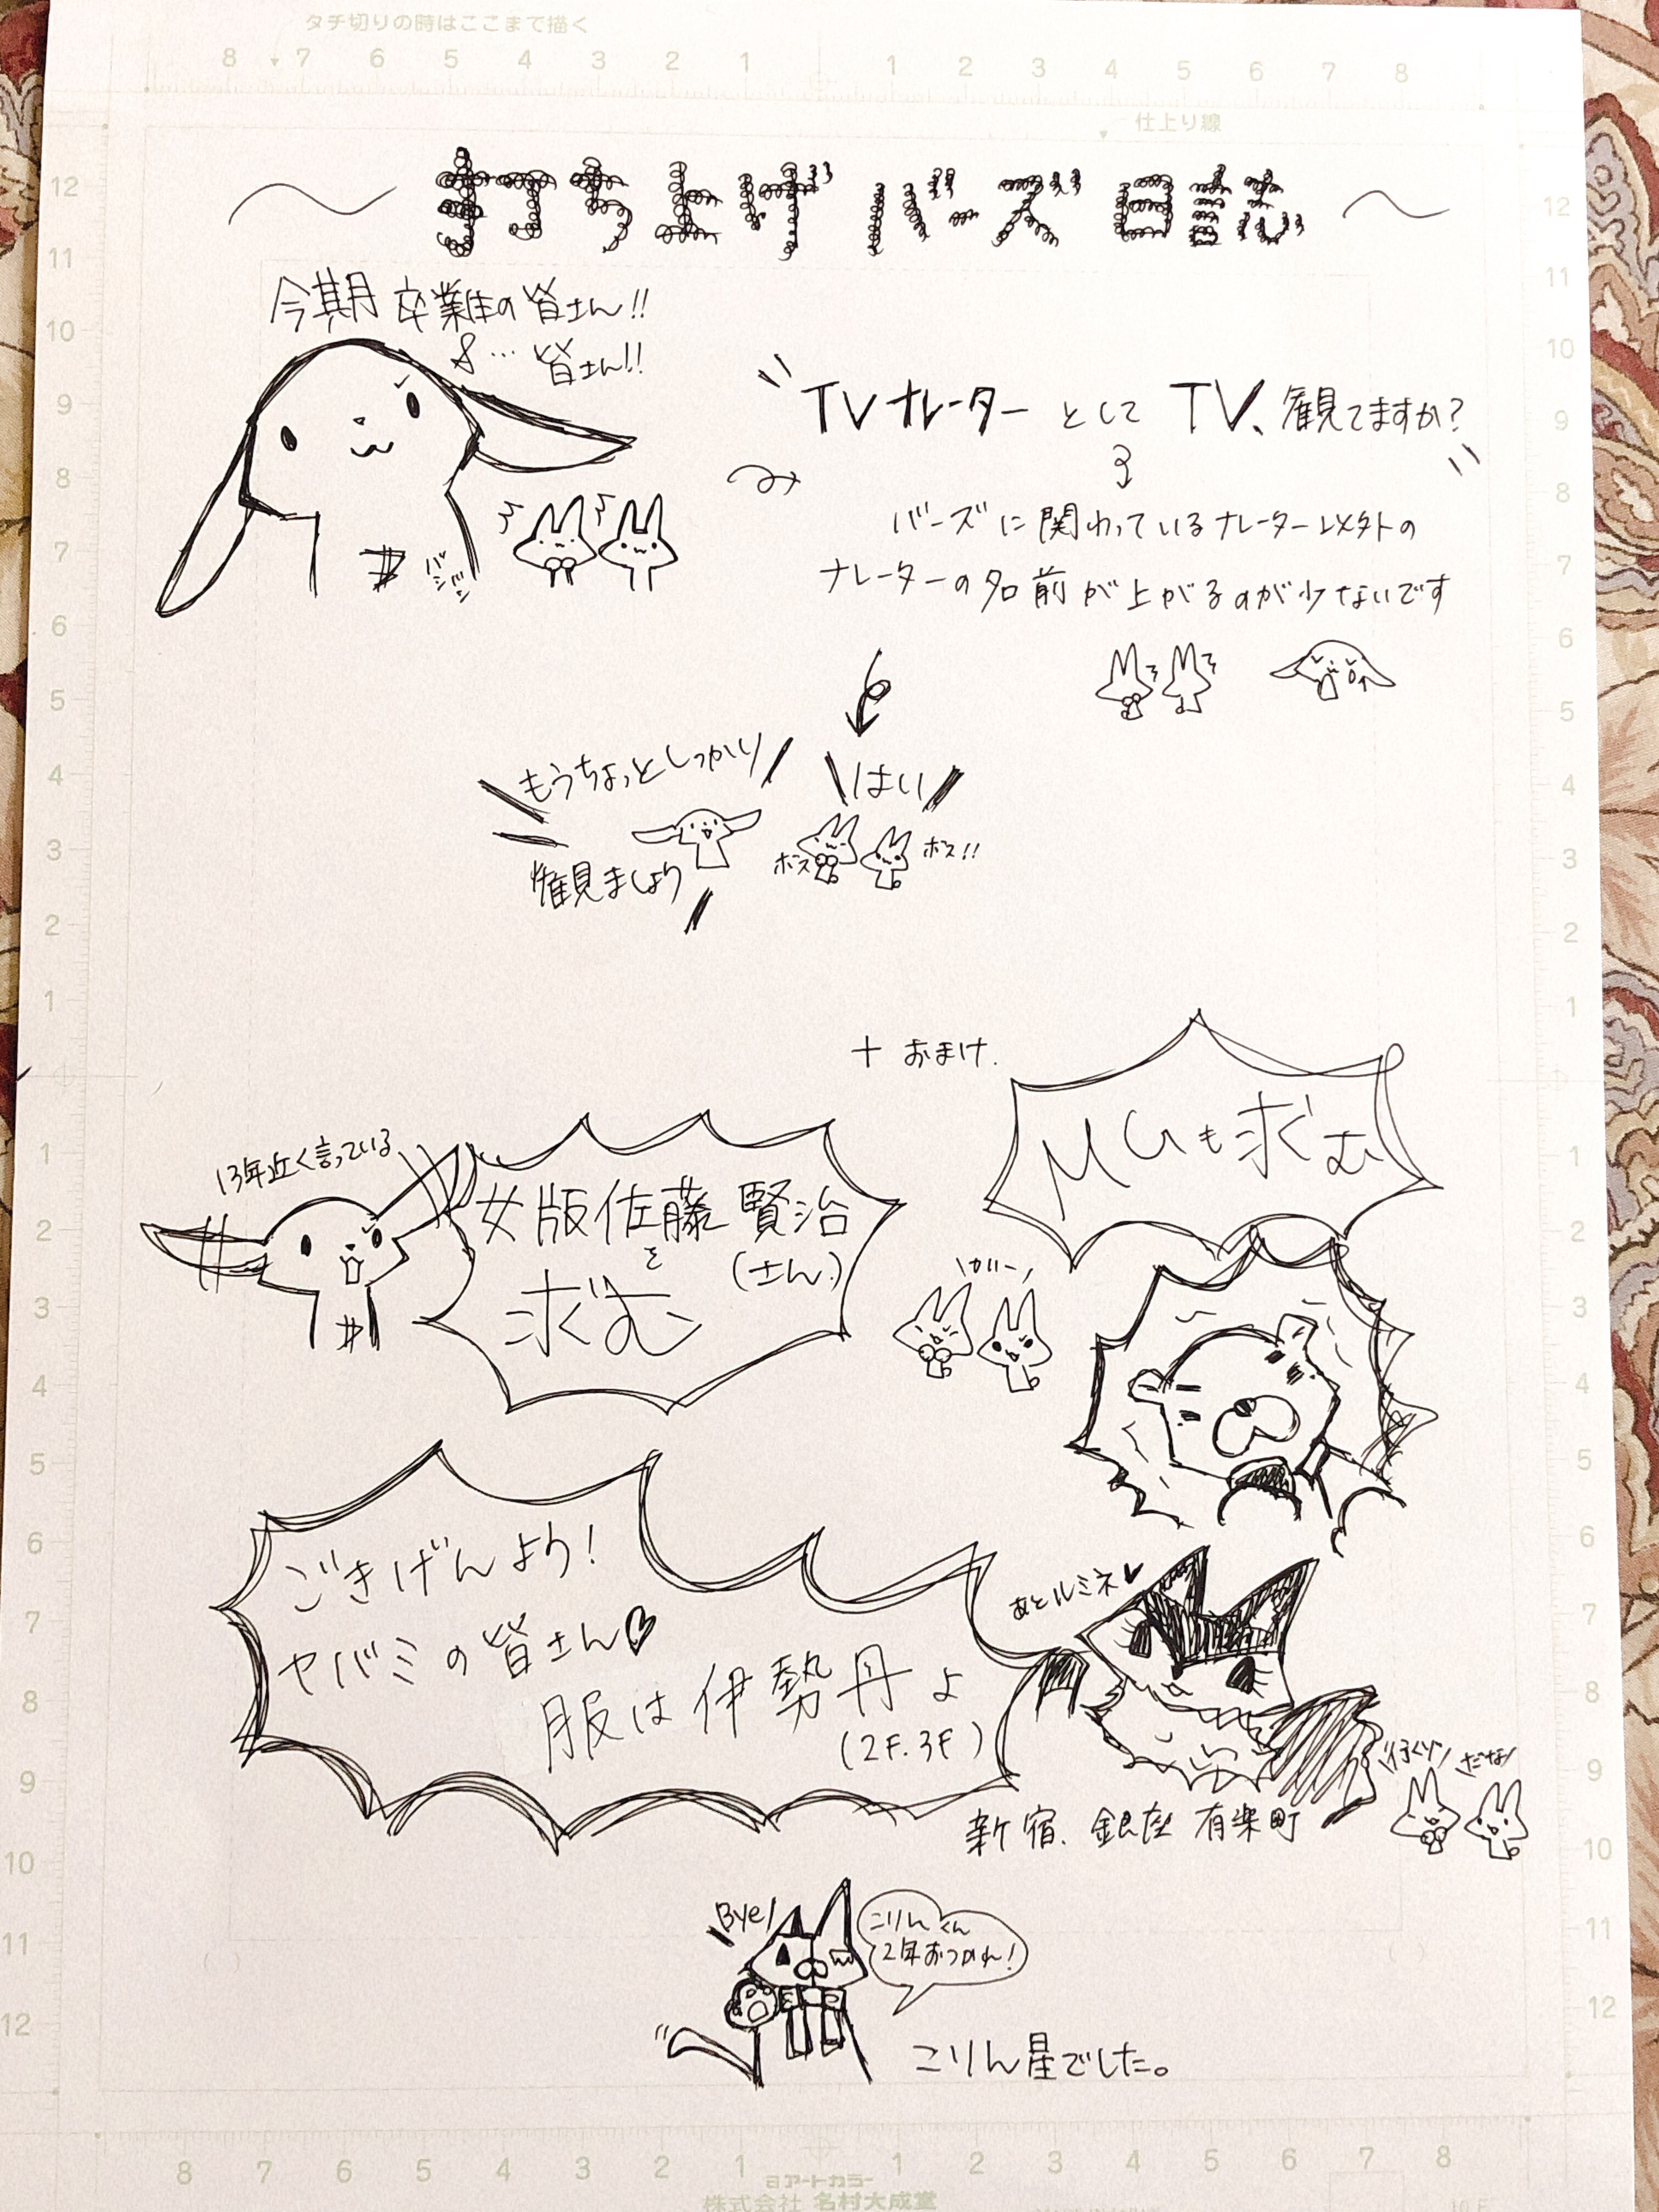 タチ切りの時はここまで描く
8 7 6 5 4 3 2 1 1 2 3 4 5 6 7 8
仕上り線
〜打ち上げバーズ日誌〜
今期卒業生の皆さん!!
&…皆さん!!
"TVナレーターとしてTV、観てますか?"
バシバシ
バーズに関わっているナレーター以外の
ナレーターの名前が上がるのが少ないです
もうちょっとしっかり
観見ましょう
はい
ボス
ボス!!
+ おまけ.
MCも求む
13年近く言っている
女版佐藤賢治
(さん)
を
求む
ガーー
ごきげんよう!
ヤバミの皆さん♡
服は伊勢丹よ
(2F.3F)
あとルミネ♥
新宿、銀座 有楽町
行くぞ
だな
Bye
こりんくん
2年おつかれ!
こりん星でした。
8 7 6 5 4 3 2 1 1 2 3 4 5 6 7 8
アートカラー
株式会社 名村大成堂